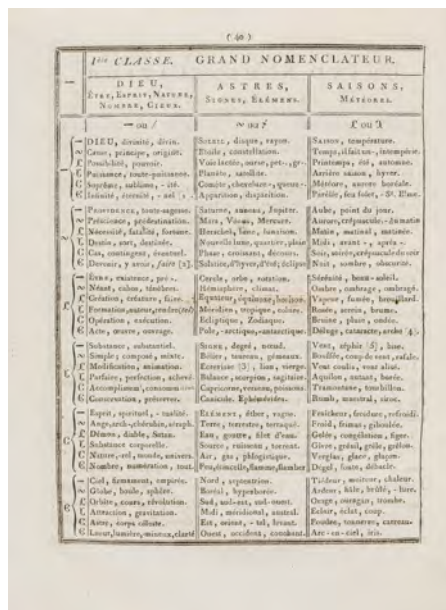 ( 40 )
1ère CLASSE. GRAND NOMENCLATEUR.
DIEU, ASTRES, SAISONS,
ÊTRE, ESPRIT, NATURE, SIGNES, ÉLÉMENS. MÉTÉORES.
NOMBRE, CIEUX.
DIEU, divinité, divin. SOLEIL, disque, rayon. SAISON, température.
Cause, principe, origine. Étoile, constellation. Temps, intempérie.
Possibilité, pouvoir. Voie lactée, ourse, Printemps, été, automne.
Puissance, toute-puissance. Planète, satellite. Arrière saison, hyver.
Suprême, sublime, - ité. Comète, chevelure, queue. Météore, aurore boréale.
Infinité, éternité, - nel Apparition, disparition. feu folet,
PROVIDENCE, toute-sagesse. Saturne, anneau, Jupiter. Aube, point du jour.
Prescience, prédestination. Mars, Vénus, Mercure. Aurore, crépuscule
Nécessité, fatalité, fortune. Herschel, lune, lunaison. Matin, matinal, matinée.
Destin, sort, destinée. Nouvelle lune, quartier, plein Midi, avant -, après -.
Cas, contingent, éventuel. Phase, croissant, décours. Soir, soirée, crépuscule
Devenir, y avoir, faire Solstice, éclipse Nuit, sombre, obscurité.
ÊTRE, existence, Cercle, orbe, rotation. Sérénité, beau-soleil.
Néant, cahos, ténèbres. Hémisphère, climat. Ombre, ombrage, ombragé.
Création, créature, faire. Équateur, équinoxe, horizon. Vapeur, fumée, brouillard.
Formation, auteur, Méridien, tropique, colure. Rosée, serein, brume.
Opération, exécution. Écliptique, Zodiaque. Bruine, pluie, ondée.
Acte, œuvre, ouvrage. Pole, -arctique, -antarctique. Déluge, cataracte,
Substance, substantiel. SIGNE, degré, nœud. Vent, zéphir, bise.
Simple; composé, mixte. Bélier, taureau, gémeaux. Bouffée, coup de vent, rafale.
Modification, animation. Écrevisse, lion, vierge. Vent coulis, vent alisé.
Parfaire, perfection, achevé. Balance, scorpion, sagitaire. Aquilon, autan, borée.
Accomplissem. Capricorne, verseau, poissons. Tramontane, tourbillon.
Conservation, préserver. Canicule. Éphémérides. Rumb, mestral,
Esprit, spirituel, - tualité. ÉLÉMENT, éther, vague. Fraîcheur, froidure, refroidi.
Ange, arch-, chérubin, séraph. Terre, terrestre, terraqué. Froid, frimat, giboulée.
Démon, diable, Satan. Eau, goutte, filet d'eau. Gelée, congélation, figer.
Substance corporelle. Source, ruisseau, torrent. Givre, grésil, grêle, grêlon.
Nature, -rel, monde, univers. Air, gas, phlogistique. Verglas, glace, glaçon.
Nombre, numération, tout. Feu, étincelle, flamme, flamber Dégel, fonte, débacle.
Ciel, firmament, empirée. Nord, septentrion. Tiédeur, moiteur, chaleur.
Globe, boule, sphère. Boréal, hyperborée. Ardeur, hâle, brûlé,
Orbite, cours, révolution. Sud, sud-est, sud-ouest. Orage, ouragan, trombe.
Attraction, gravitation. Midi, méridional, austral. Éclair, éclat, coup.
Astre, corps céleste. Est, orient, - tal, levant. Foudre, tonnerre, carreau.
Lueur, lumière, clarté Ouest, occident, couchant. Arc-en-ciel, iris.